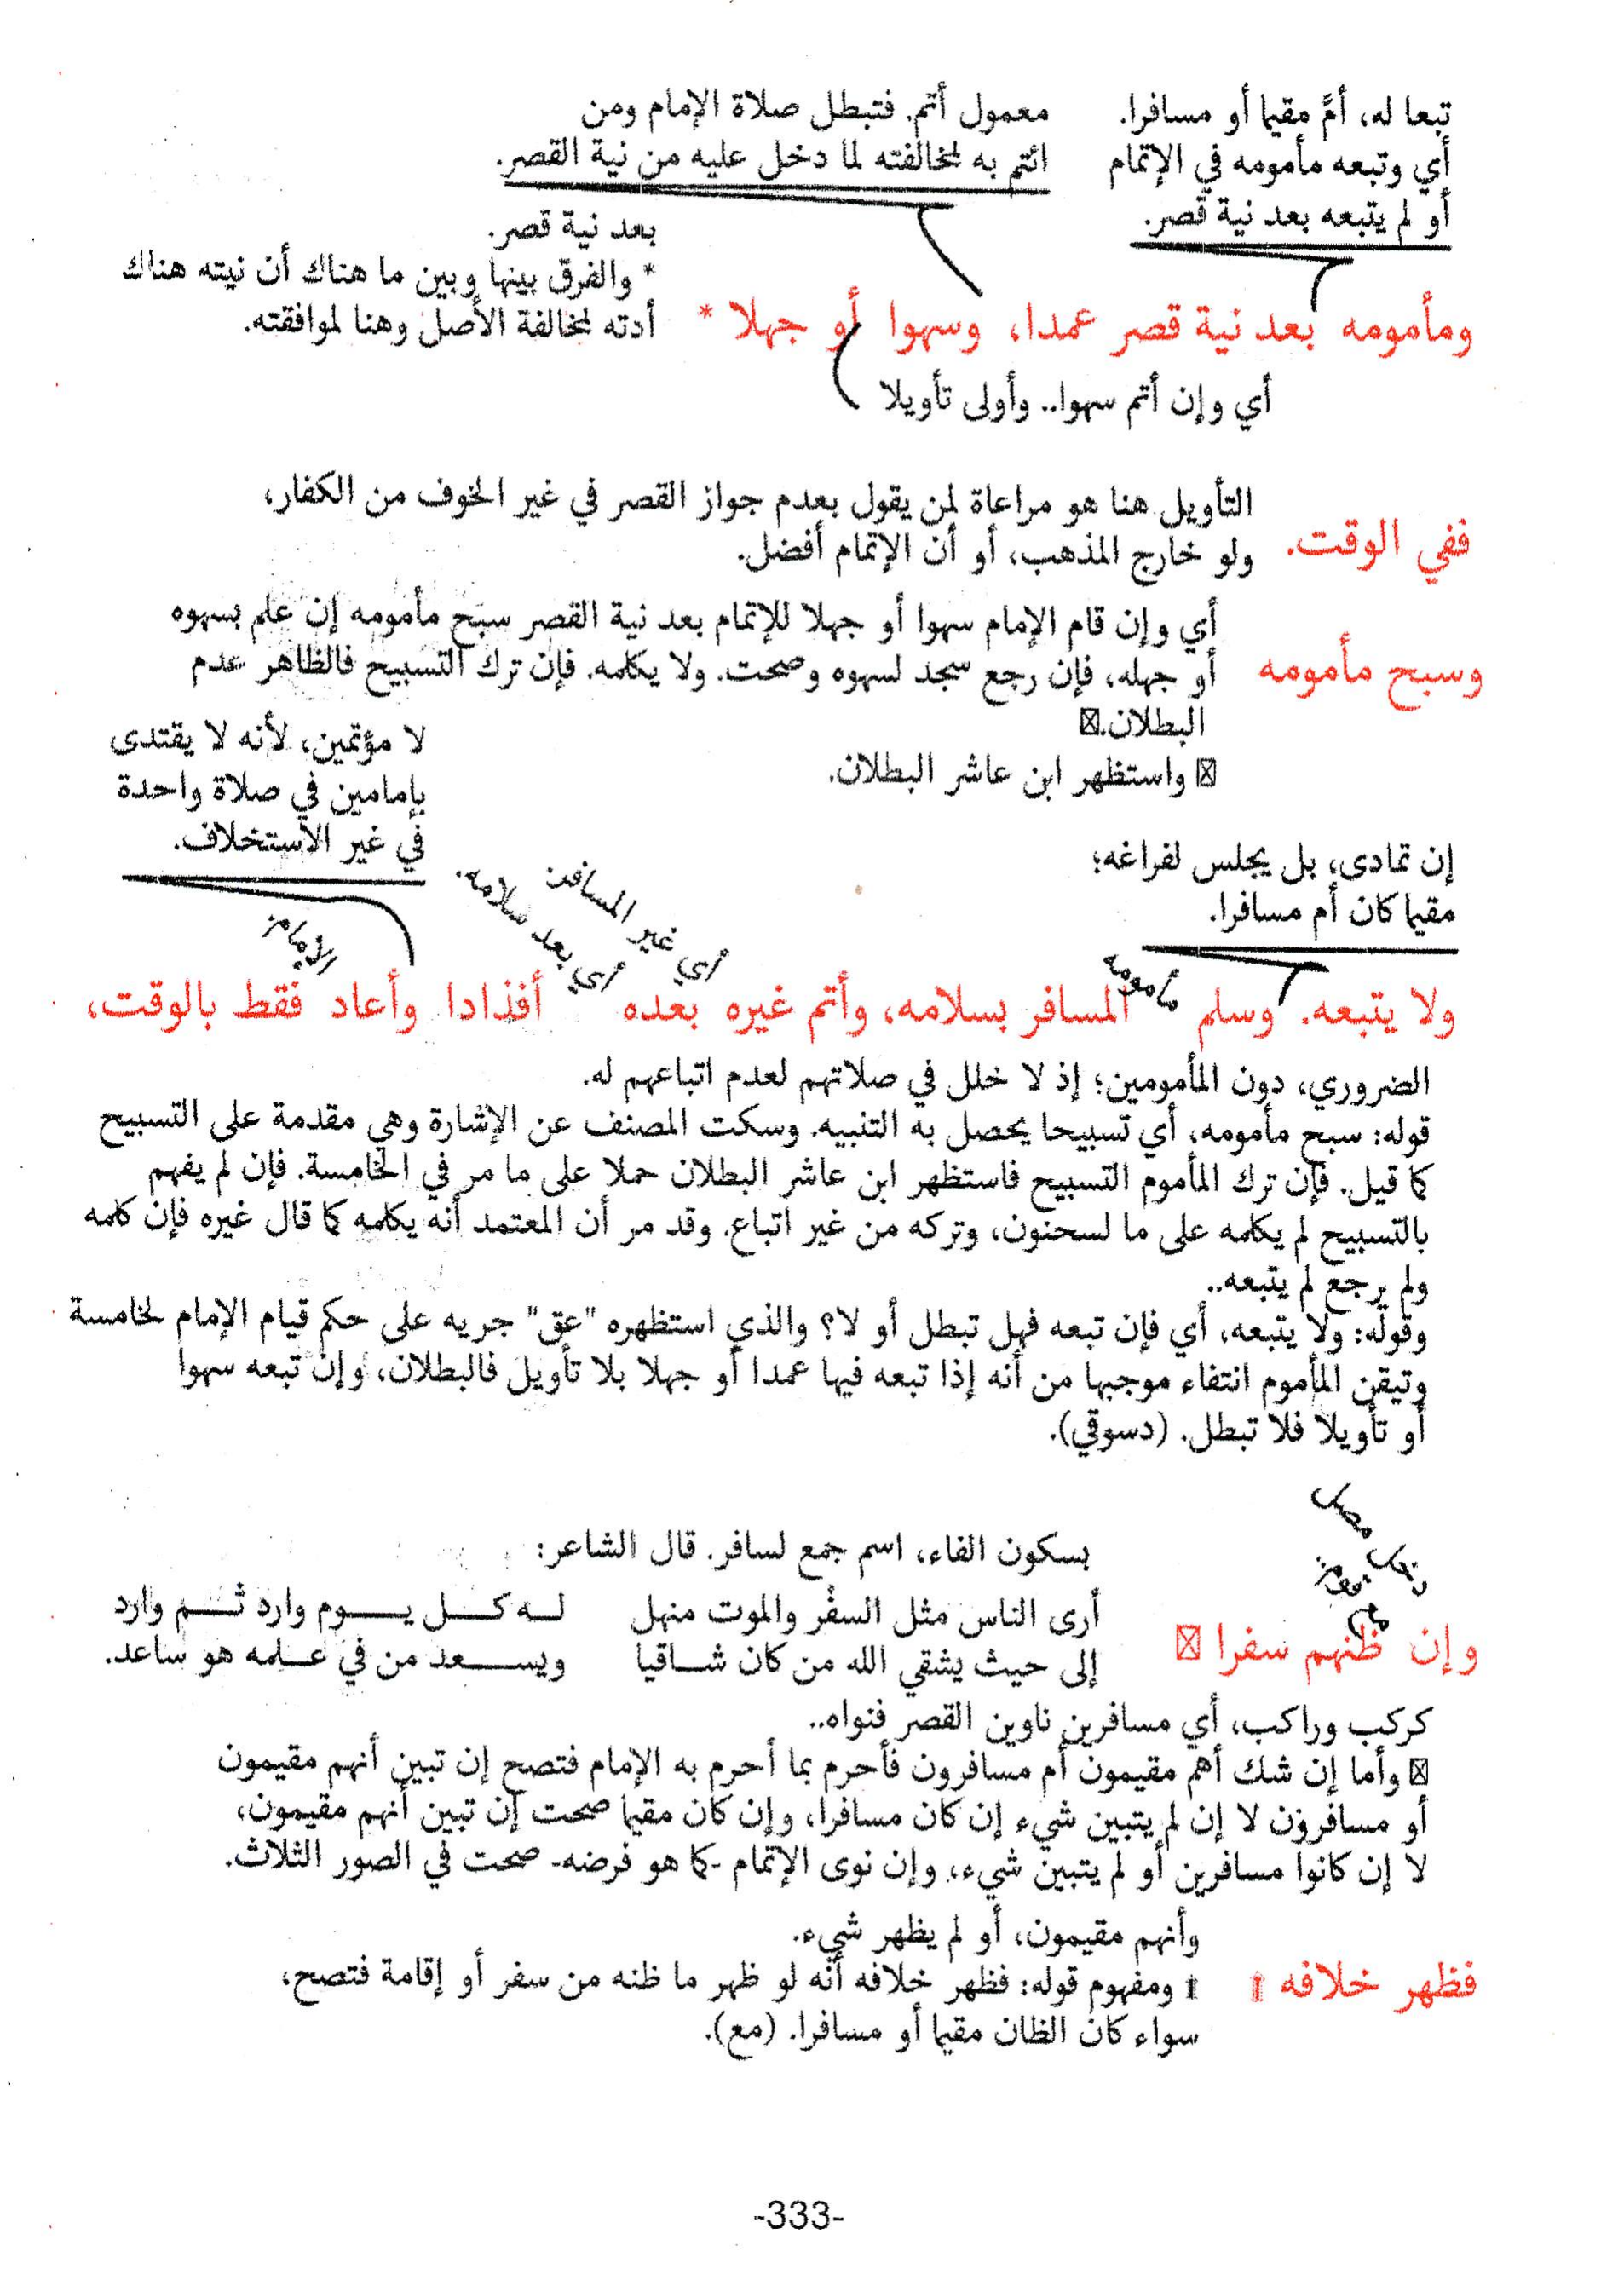 تبعا له، أمَّ مقيما أو مسافرا.
أي وتبعه مأمومه في الإتمام
أو لم يتبعه بعد نية قصر.
معمول أتم. فتبطل صلاة الإمام ومن
ائتم به لمخالفته لما دخل عليه من نية القصر.
بعد نية قصر.
* والفرق بينها وبين ما هناك أن نيته هناك
أدته لمخالفة الأصل وهنا لموافقته.
ومأمومه بعد نية قصر عمدا، وسهوا أو جهلا *
أي وإن أتم سهوا.. وأولى تأويلا
التأويل هنا هو مراعاة لمن يقول بعدم جواز القصر في غير الخوف من الكفار،
ولو خارج المذهب، أو أن الإتمام أفضل.
ففي الوقت.
أي وإن قام الإمام سهوا أو جهلا للإتمام بعد نية القصر سبح مأمومه إن علم بسهوه
وسبح مأمومه
أو جهله، فإن رجع سجد لسهوه وصحت. ولا يكلمه. فإن ترك التسبيح فالظاهر عدم
البطلان.
واستظهر ابن عاشر البطلان.
لا مؤتمين، لأنه لا يقتدى
بإمامين في صلاة واحدة
في غير الاستخلاف.
إن تمادى، بل يجلس لفراغه؛
مقيما كان أم مسافرا.
أي غير المسافر.
أي بعد سلامه.
مأمومه
ولا يتبعه. وسلم المسافر بسلامه، وأتم غيره بعده أفذاذا وأعاد فقط بالوقت،
الضروري، دون المأمومين؛ إذ لا خلل في صلاتهم لعدم اتباعهم له.
قوله: سبح مأمومه، أي تسبيحا يحصل به التنبيه. وسكت المصنف عن الإشارة وهي مقدمة على التسبيح
كما قيل. فإن ترك المأموم التسبيح فاستظهر ابن عاشر البطلان حملا على ما مر في الخامسة. فإن لم يفهم
بالتسبيح لم يكلمه على ما لسحنون، وتركه من غير اتباع. وقد مر أن المعتمد أنه يكلمه كما قال غيره فإن كلمه
ولم يرجع لم يتبعه..
وقوله: ولا يتبعه، أي فإن تبعه فهل تبطل أو لا؟ والذي استظهره "عق" جريه على حكم قيام الإمام لخامسة
وتيقن المأموم انتفاء موجبها من أنه إذا تبعه فيها عمدا أو جهلا بلا تأويل فالبطلان، وإن تبعه سهوا
أو تأويلا فلا تبطل. (دسوقي).
بسكون الفاء، اسم جمع لسافر. قال الشاعر:
أرى الناس مثل السفْر والموت منهل له كل يوم وارد ثم وارد
إلى حيث يشقي الله من كان شاقيا ويسعد من في علمه هو ساعد.
وإن ظنهم سفرا
كركب وراكب، أي مسافرين ناوين القصر فنواه..
وأما إن شك أهم مقيمون أم مسافرون فأحرم بما أحرم به الإمام فتصح إن تبين أنهم مقيمون
أو مسافرون لا إن لم يتبين شيء إن كان مسافرا، وإن كان مقيما صحت إن تبين أنهم مقيمون،
لا إن كانوا مسافرين أو لم يتبين شيء، وإن نوى الإتمام -كما هو فرضه- صحت في الصور الثلاث.
وأنهم مقيمون، أو لم يظهر شيء.
فظهر خلافه
ومفهوم قوله: فظهر خلافه أنه لو ظهر ما ظنه من سفر أو إقامة فتصح،
سواء كان الظان مقيما أو مسافرا. (مع).
-333-